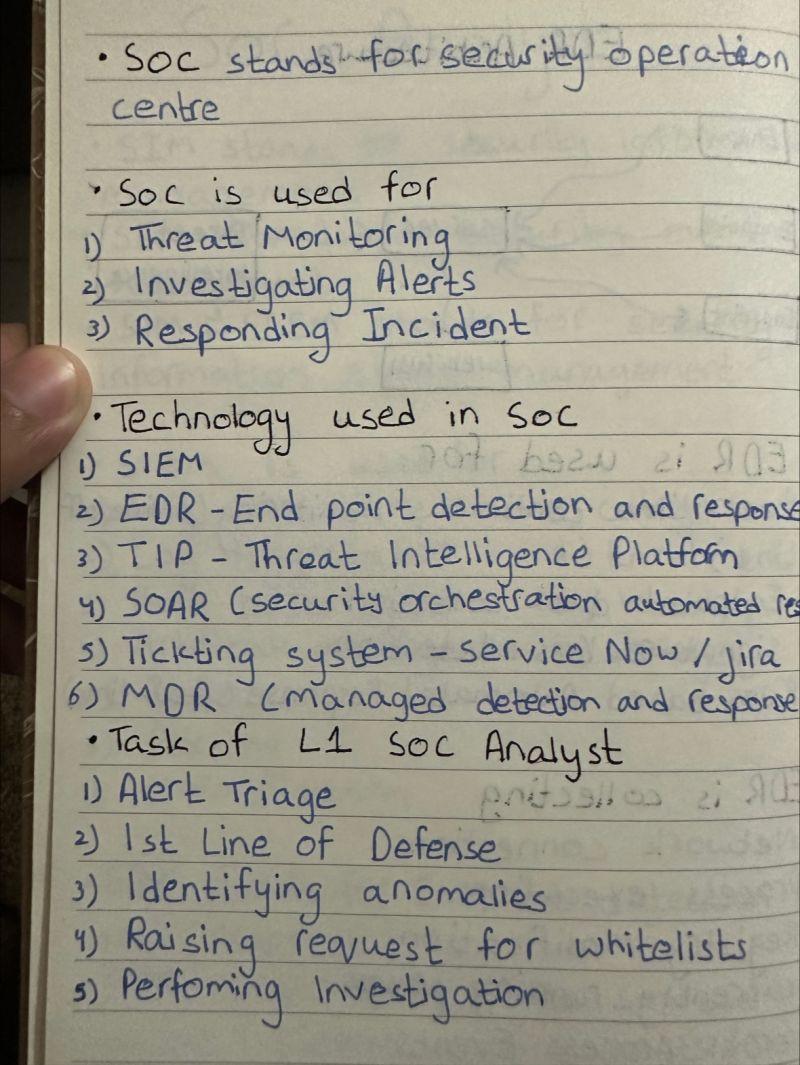 • SOC stands for security operation
centre
• SOC is used for
1) Threat Monitoring
2) Investigating Alerts
3) Responding Incident
• Technology used in SOC
1) SIEM
2) EDR - End point detection and response
3) TIP - Threat Intelligence Platform
4) SOAR (security orchestration automated res
5) Tickting system - service Now / jira
6) MDR (managed detection and response
• Task of L1 SOC Analyst
1) Alert Triage
2) 1st Line of Defense
3) Identifying anomalies
4) Raising request for whitelists
5) Perfoming Investigation
EDR is used for
EDR is collecting